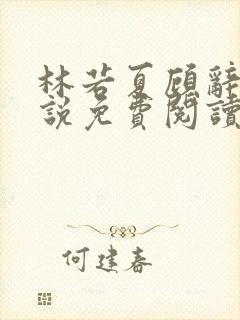 林若夏顾辞
說免費閱讀
何建春